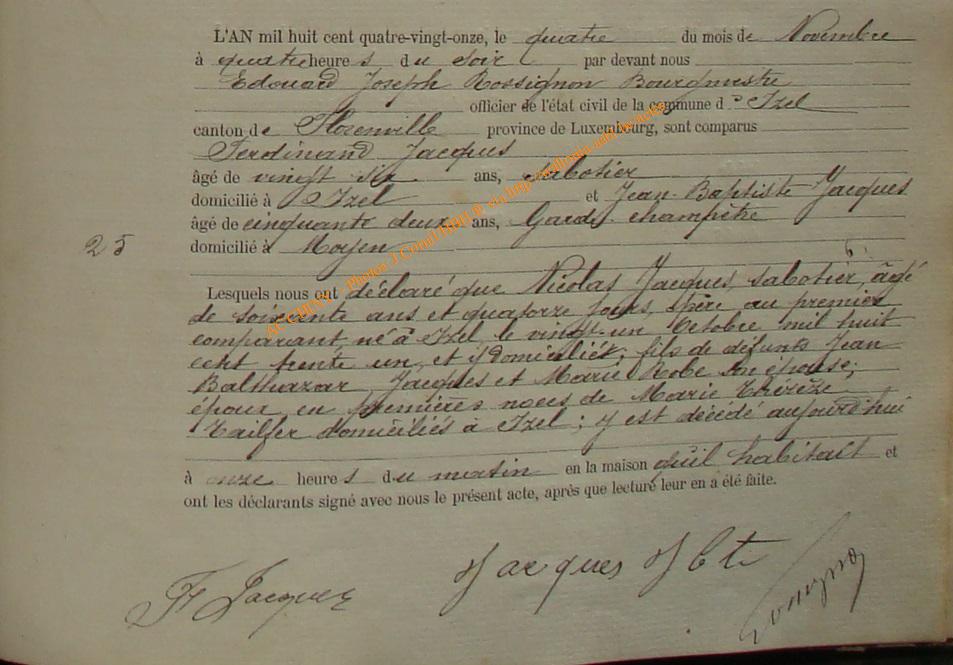 L'AN mil huit cent quatre-vingt-onze, le quatre du mois de Novembre
à quatre heures du soir par devant nous
Edouard Joseph Rossignon Bourgmestre
officier de l'état civil de la commune d'Izel
canton de Florenville province de Luxembourg, sont comparus
Ferdinand Jacques
âgé de vingt six ans, sabotier
domicilié à Izel et Jean-Baptiste Jacques
âgé de cinquante deux ans, Garde champêtre
25 domicilié à Moyen
Lesquels nous ont déclaré que Nicolas Jacques, sabotier, âgé
de soixante ans et quatorze jours, père au premier
comparant né à Izel, le vingt un Octobre mil huit
cent trente un, et y domicilié; fils de défunts Jean
Balthazar Jacques et Marie Robe son épouse;
époux en premières noces de Marie Thérèze
Tailfer domiciliés à Izel; y est décédé aujourd'hui
à onze heures du matin en la maison qu'il habitait et
ont les déclarants signé avec nous le présent acte, après que lecture leur en a été faite.
F Jacques Jacques J Bte